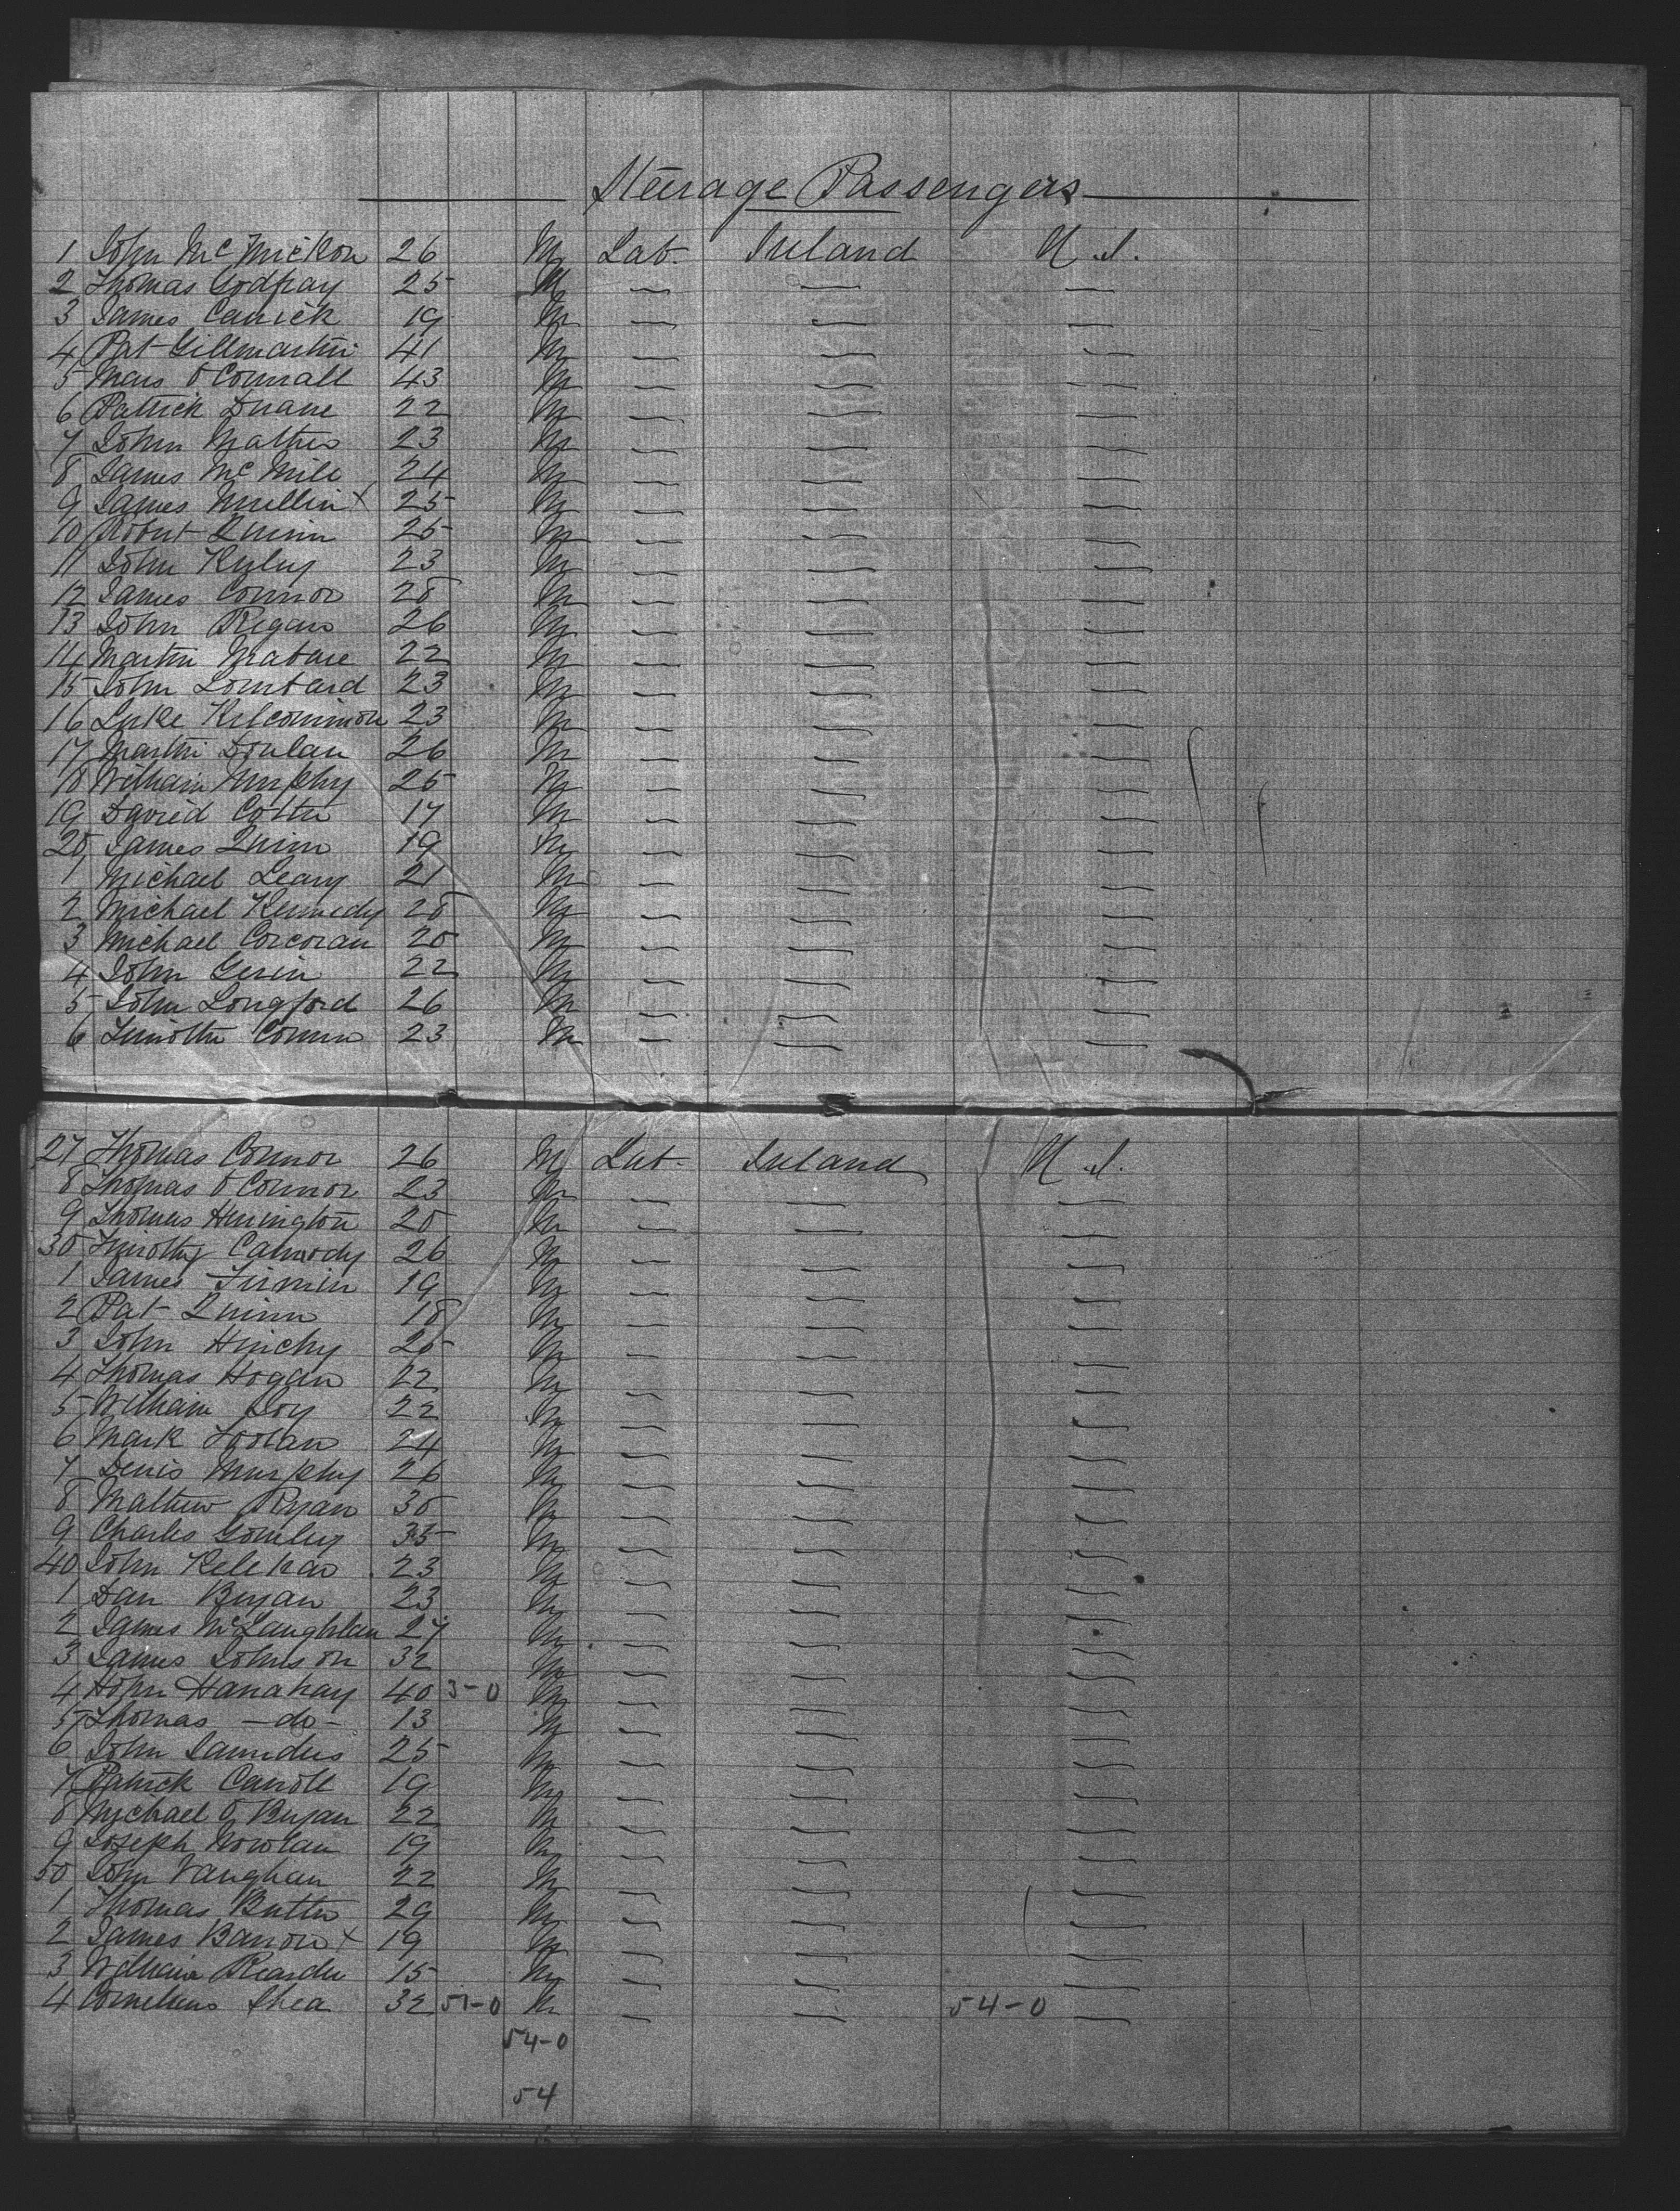 Steerage Passengers
1 John McMickon 26 M Lab. Ireland U.S.
2 Thomas Godfray 25 M — — —
3 James Carrick 19 M — — —
4 Pat Gillmartin 41 M — — —
5 O'Connall 43 M — — —
6 Patrick Duane 22 M — — —
7 John 23 M — — —
8 James McMill 24 M — — —
9 James Mullin X 25 M — — —
10 Robert Quinn 25 M — — —
11 John 23 M — — —
12 James Connor 28 M — — —
13 John Regan 26 M — — —
14 Martin 22 M — — —
15 John Lombard 23 M — — —
16 Luke Kilcommon 23 M — — —
17 Martin Donlan 26 M — — —
18 William Murphy 25 M — — —
19 David Cotter 17 M — — —
20 James Quinn 19 M — — —
1 Michael Leary 21 M — — —
2 Michael Kennedy 28 M — — —
3 Michael Corcoran 20 M — — —
4 John 22 M — — —
5 John Longford 26 M — — —
6 23 M — — —
27 Thomas Connor 26 M Lab. Ireland U.S.
8 Thomas O'Connor 23 M — — —
9 Thomas Herrington 20 M — — —
30 Timothy Camody 26 M — — —
1 James 19 M — — —
2 Pat Quinn 18 M — — —
3 John Hinchy 25 M — — —
4 Thomas Hogan 22 M — — —
5 William 22 M — — —
6 Mark 24 M — — —
7 Denis Murphy 26 M — — —
8 Mathew Ryan 30 M — — —
9 Charles Gormley 35 M — — —
40 John 23 M — — —
1 Dan Bryan 23 M — — —
2 James McLaughlan 27 M — — —
3 James Johnson 32 M — — —
4 John Hanahay 40 3-0 M — — —
5 Thomas -do- 13 M — — —
6 John Saunders 25 M — — —
7 Patrick Carroll 19 M — — —
8 Michael O'Bryan 22 M — — —
9 Joseph Nowlan 19 M — — —
50 John Vaughan 22 M — — —
1 Thomas Butler 29 M — — —
2 James Barron X 19 M — — —
3 William Rearden 15 M — — —
4 Cornelius Shea 32 51-0 M — — 54-0 —
54-0
54